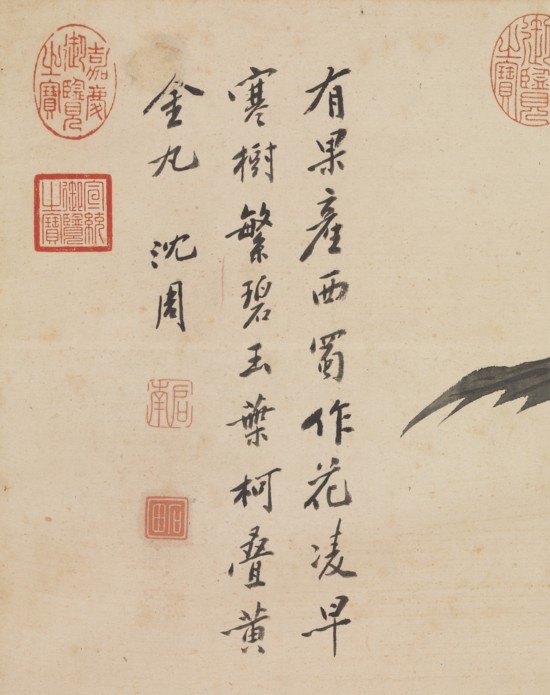 有果產西蜀作花凌早
寒樹繁碧玉葉柯疊黄
金丸 沈周
啟南
石田
御覽之寶
嘉慶御覽之寶
宣統御覽之寶